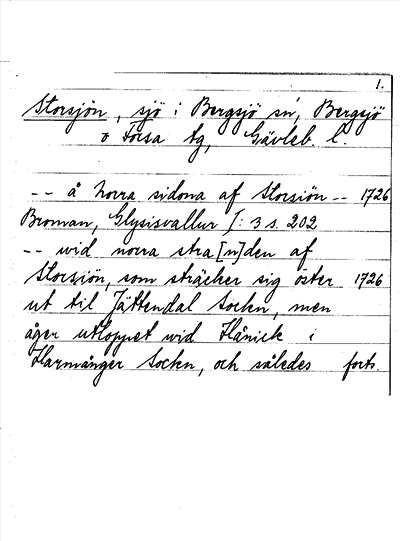 1.
Storsjön, sjö i Bergsjö sn, Bergsjö
o Forsa tg, Gävleb. l.
-- å norra sidona af Storsiön -- 1726
Broman, Glysisvallur I: 3 s. 202
-- wid norra stra[n]den af
Storsiön, som sträcker sig öster 1726
ut til Jättendal Sockn, men
äger utloppet wid Hånick i
Harmånger Sockn, och således forts.